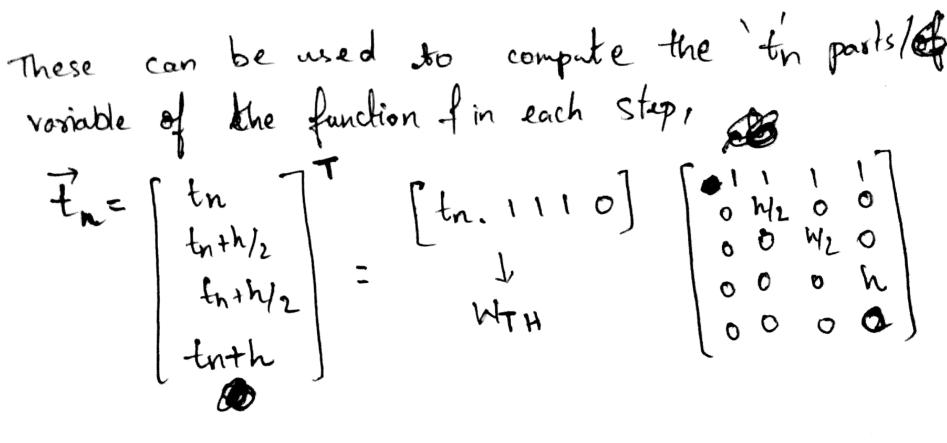 These can be used to compute the 'tn' parts/
variable of the function f in each step,
→tn = [ tn ; tn+h/2 ; tn+h/2 ; tn+h ]ᵀ = [ tn. 1 1 1 0 ] [ 1 1 1 1 ; 0 h/2 0 0 ; 0 0 h/2 0 ; 0 0 0 h ; 0 0 0 0 ]
↓
WTH